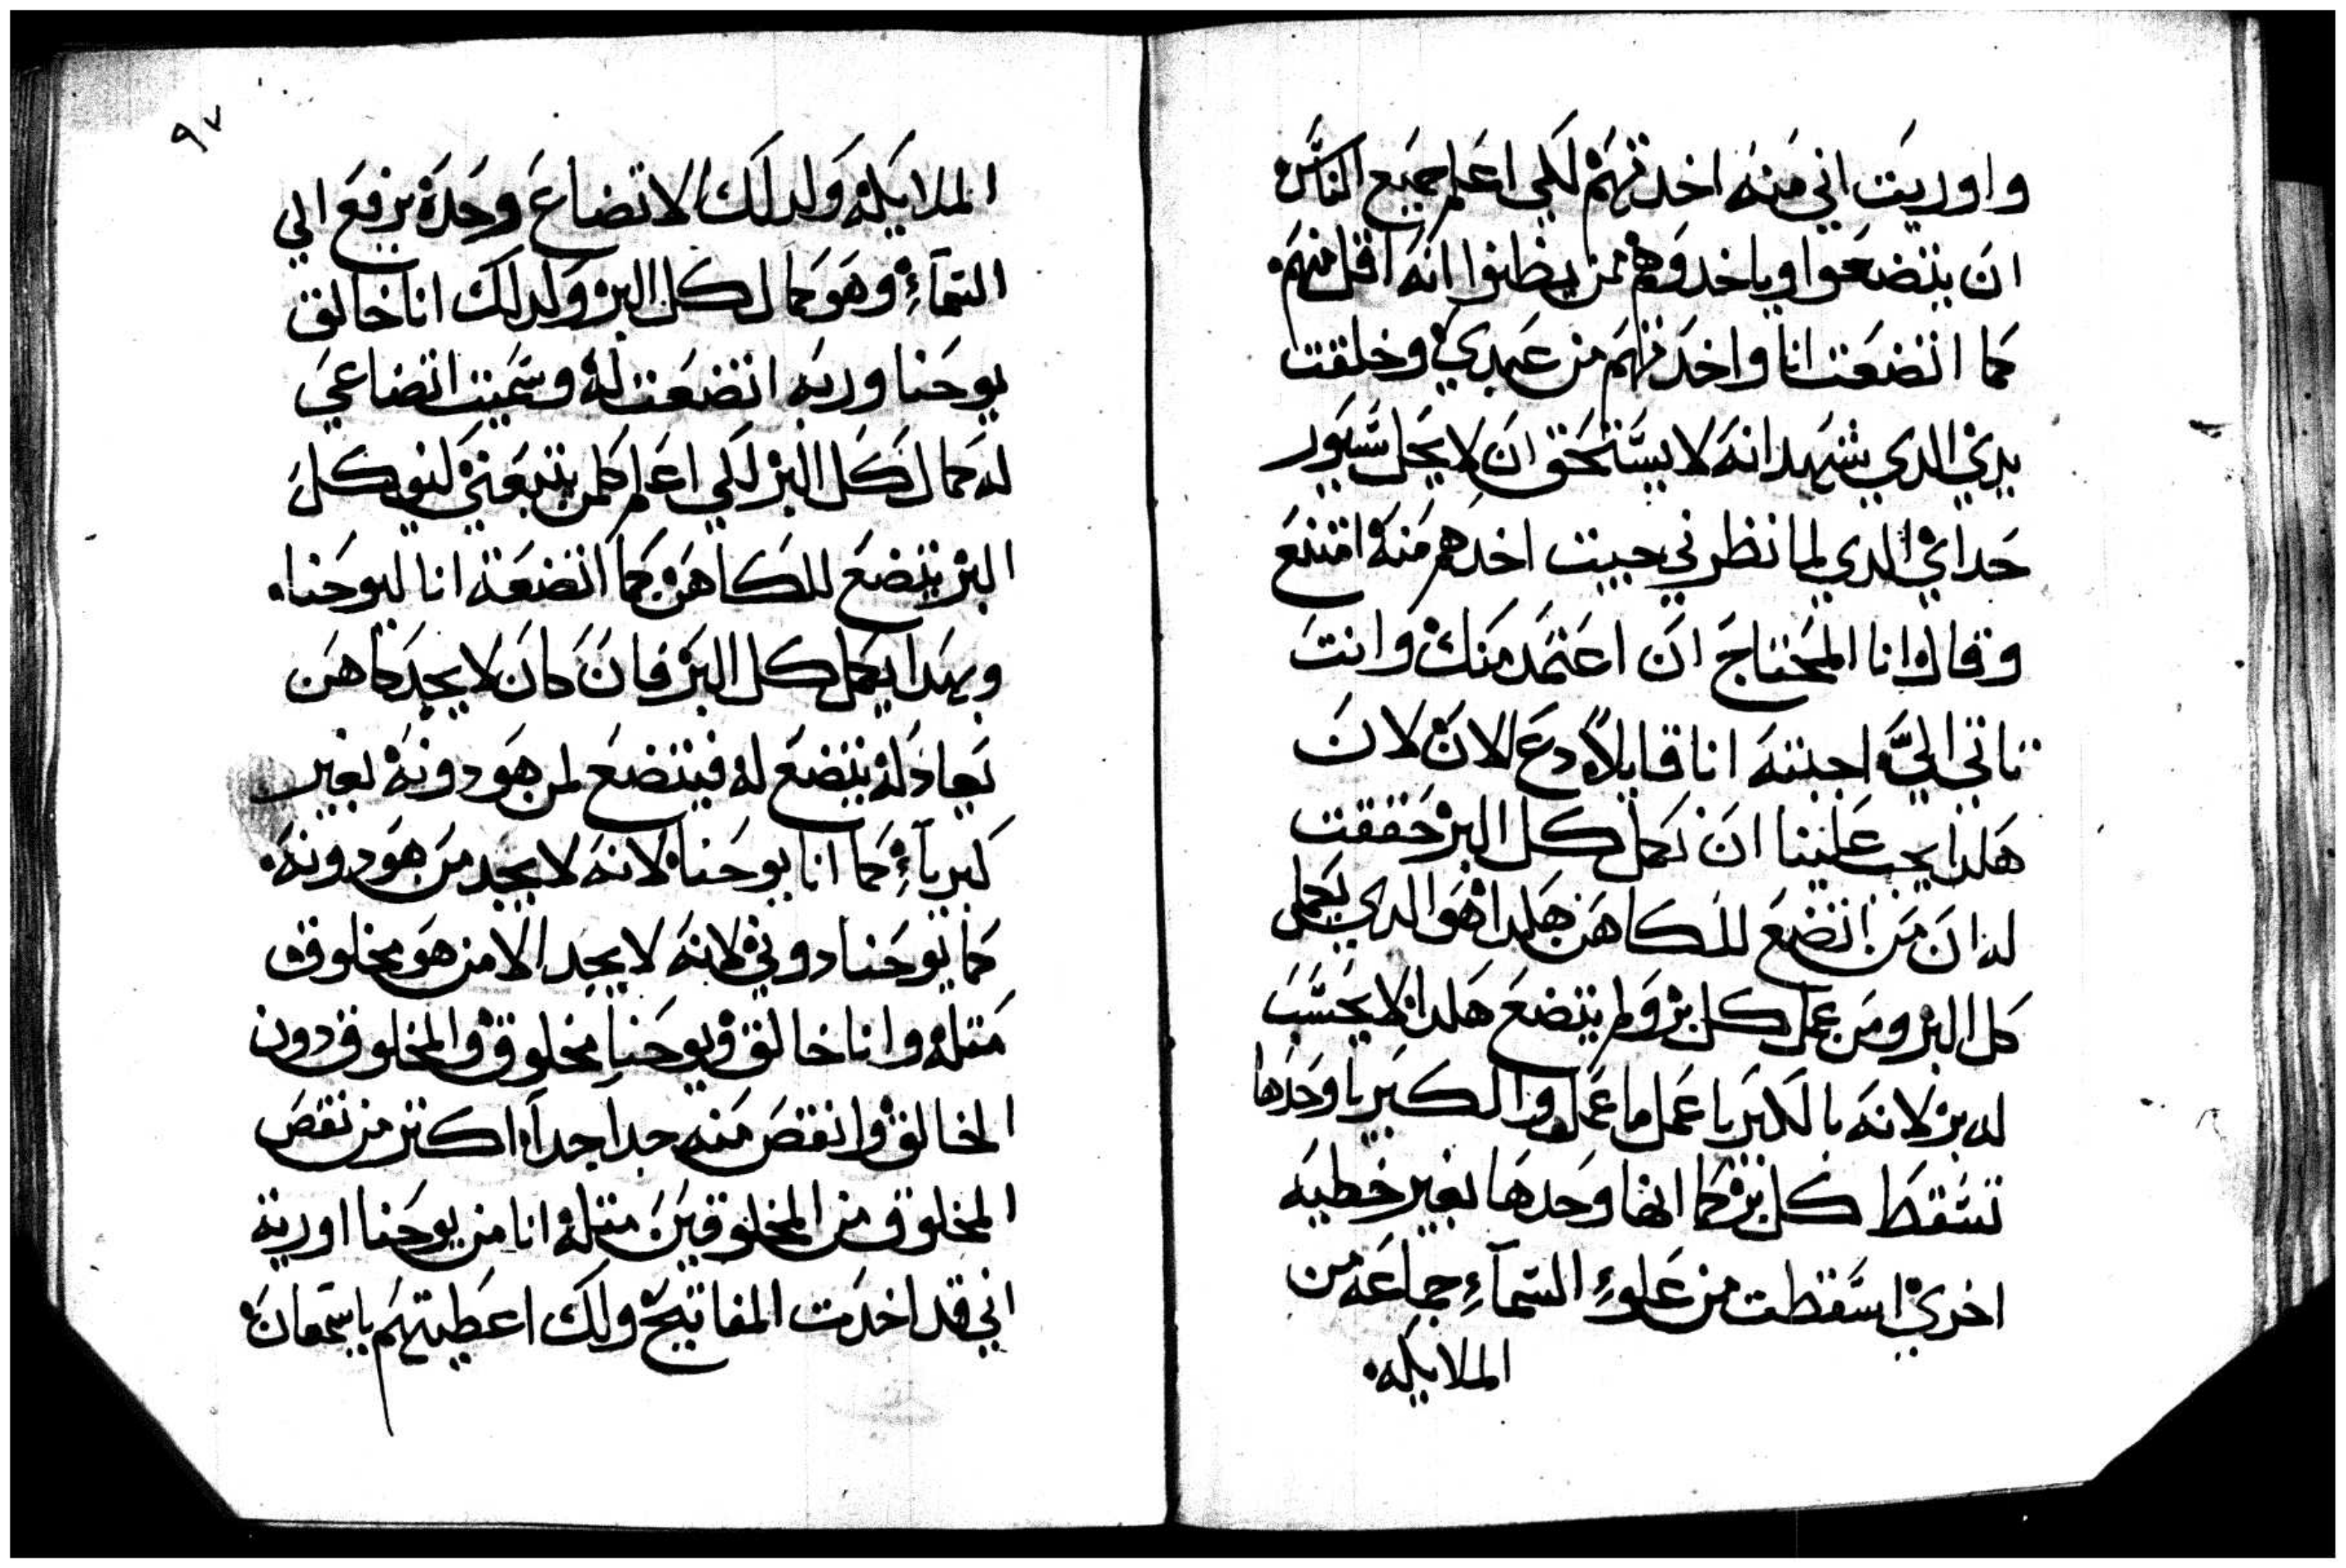 واوريت اني منه اخدتهم لكي اعلم جميع الناس
ان يتضعوا وياخدوهم ممن يظنوا انه اقل منهم
كما اتضعت انا واخدتهم من عبدي وخلقت
يدي الدي شهد انه لا يستحق ان لا يحل سيور
حداي الدي لما نظرني جيت اخدهم منه امتنع
وقال انا المحتاج ان اعتمد منك وانت
تاتي الي اجبته انا قايلا دع الان لان
هكدا يجب علينا ان نكمل كل البر حققت
له ان من اتضع للكاهن هكدا هو الدي يكمل
كل البر ومن عمل كل بر ولم يتضع هكدا لا يحسب
له بر لانه بالكبريا عمل ما عمل والكبريا وحدها
تسقط كل بر كما انها وحدها بغير خطيه
اخري اسقطت من علوء السمآء جماعه من
الملايكه
٩٧
الملايكه ولدلك الاتضاع وحده يرفع الي
السمآء وهو كمال كل البر ولدلك انا خالق
يوحنا وربه اتضعت له وسميت اتضاعي
له كمال كل البر لكي اعلم كلمن يتبعني لنو كل
البر يتضع للكاهن كما اتضعة انا ليوحنا
وبهدا يكمل كل البر فان كان لا يجد كاهن
يعادله يتضع له فيتضع لمن هو دونه بغير
كبريآء كما انا يوحنا لانه لا يجد من هو دونه
كما يوحنا دوني لانه لا يجد الا من هو مخلوق
متله وانا خالق ويوحنا مخلوق والمخلوق دون
الخالق وانقص منه جدا جدا اكتر من نقص
المخلوق من المخلوقين متله انا من يوحنا اورية
اني قد اخدت المفاتيح ولك اعطيتهم يا سمعان